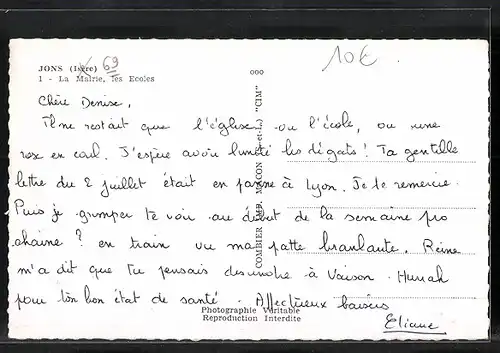 JONS (Isère) 69
10€.
1 - La Mairie, les Ecoles
Chère Denise,
Il ne restait que l'église ou l'école, ou une
rose en coul. J'espère avoir limité les dégats! Ta gentille
lettre du 2 juillet était en panne à Lyon. Je te remercie.
Puis je grimper te voir au début de la semaine pro
chaine? en train vu ma patte branlante. Reine
m'a dit que Tu pensais descendre à Vaison. Hurrah
pour ton bon état de santé. Affectueux baisers
Eliane
COMBIER IMP. MACON (S.-et-L.) "CIM"
Photographie Véritable
Reproduction Interdite